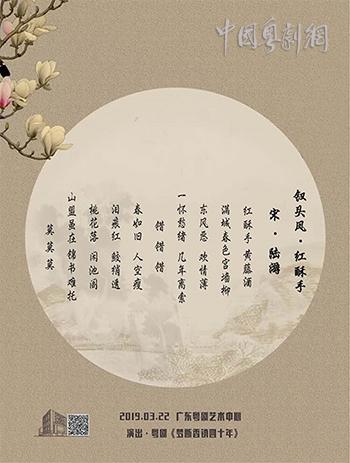 中國粵劇網
钗头凤·红酥手
宋·陆游
红酥手 黄藤酒
满城春色宫墙柳
东风恶 欢情薄
一怀愁绪 几年离索
错 错 错
春如旧 人空瘦
泪痕红 鲛绡透
桃花落 闲池阁
山盟虽在 锦书难托
莫 莫 莫
2019.03.22 广东粤剧艺术中心
演出·粤剧《梦断香销四十年》